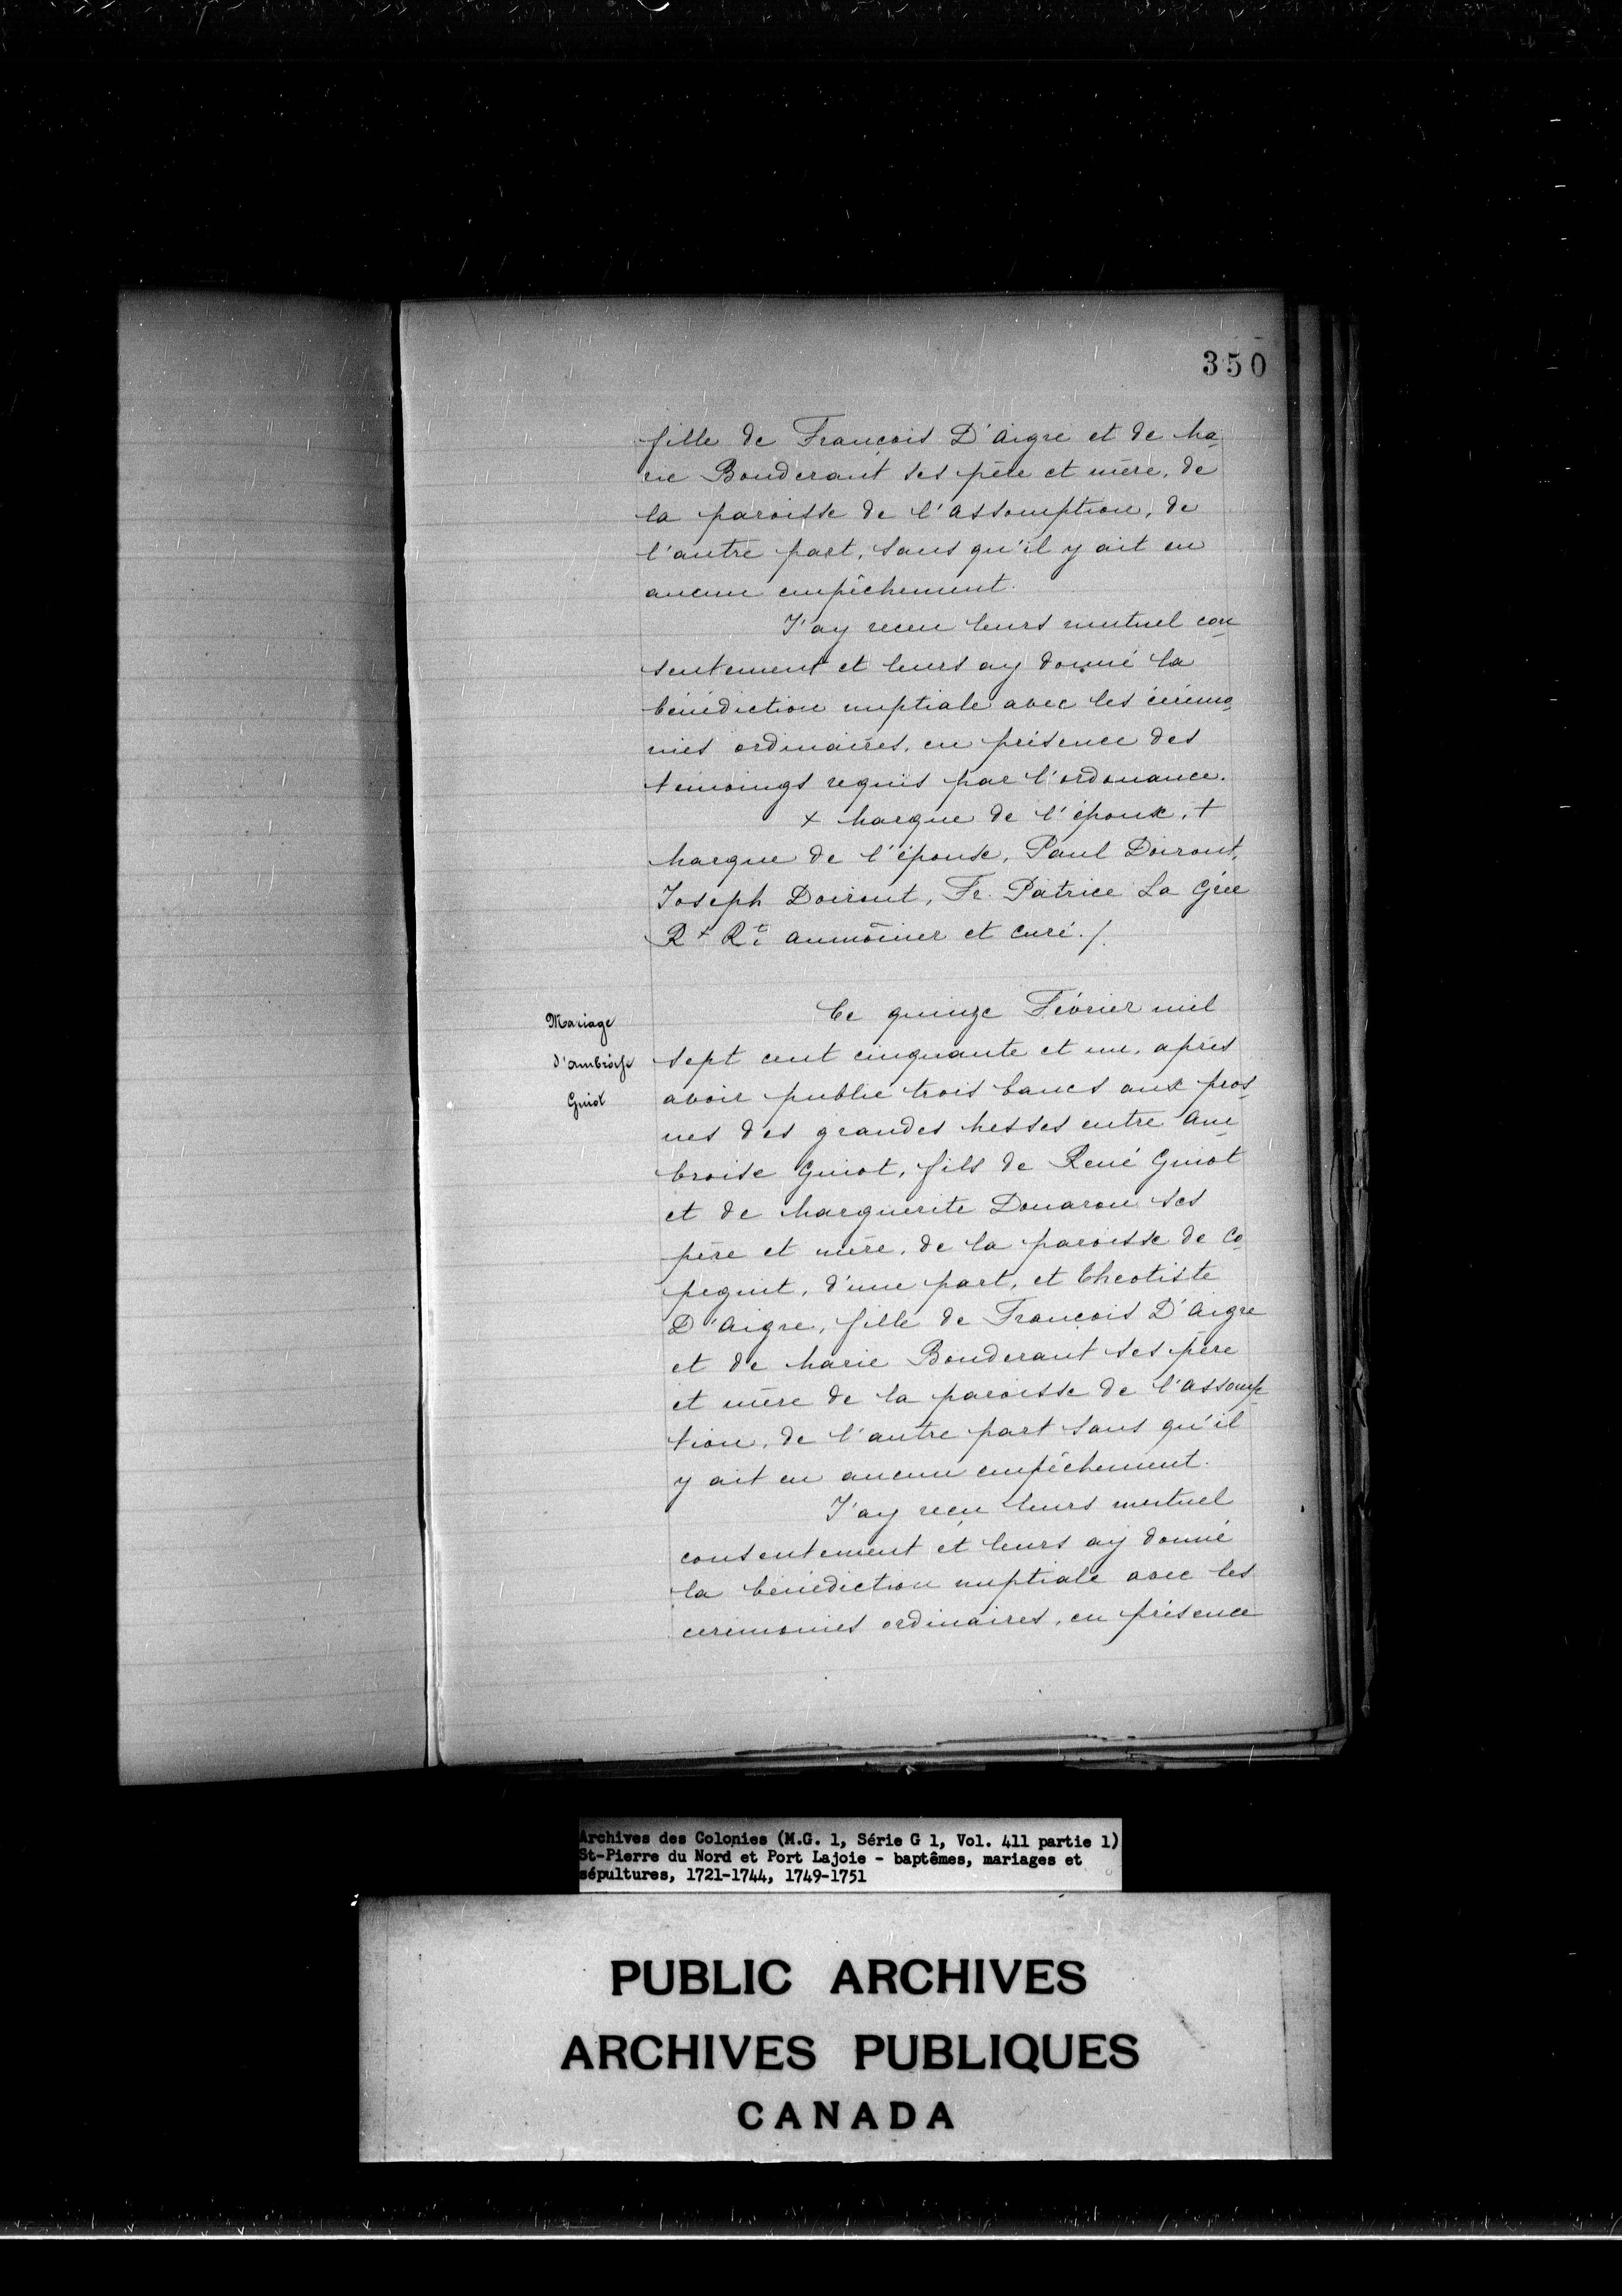 350
fille de François D'Aigre et de Ma-
rie Bouderaut ses père et mère, de
la paroisse de l'Assomption, de
l'autre part, sans qu'il y ait eu
aucun empêchement.
J'ay receu leurs mutuel con-
sentement et leurs ay donné la
bénédiction nuptiale avec les cérémo-
nies ordinaires, en présence des
temoings requis par l'ordonance.
+ Marque de l'époux, +
Marque de l'épouse, Paul Doiront,
Joseph Doiront, Fr. Patrice La Grée
aumônier et curé./.
Mariage
d'ambroise
Guiot
Ce quinze Février mil
sept cent cinquante et un, après
avoir publié trois bancs aux pros-
nes des grandes Messes entre Am-
broise Guiot, fils de René Guiot
et de Marguerite Douaron ses
père et mère, de la paroisse de Co-
pequit, d'une part, et Theotiste
D'Aigre, fille de Francois D'Aigre
et de Marie Bouderaut ses père
et mère de la paroisse de l'Assomp-
tion, de l'autre part sans qu'il
y ait eu aucun empêchement.
J'ay reçu leurs mutuel
consentement et leurs ay donné
la bénédiction nuptiale avec les
ceremonies ordinaires, en présence
Archives des Colonies (M.G. 1, Série G 1, Vol. 411 partie 1)
St-Pierre du Nord et Port Lajoie - baptêmes, mariages et
sépultures, 1721-1744, 1749-1751
PUBLIC ARCHIVES
ARCHIVES PUBLIQUES
CANADA